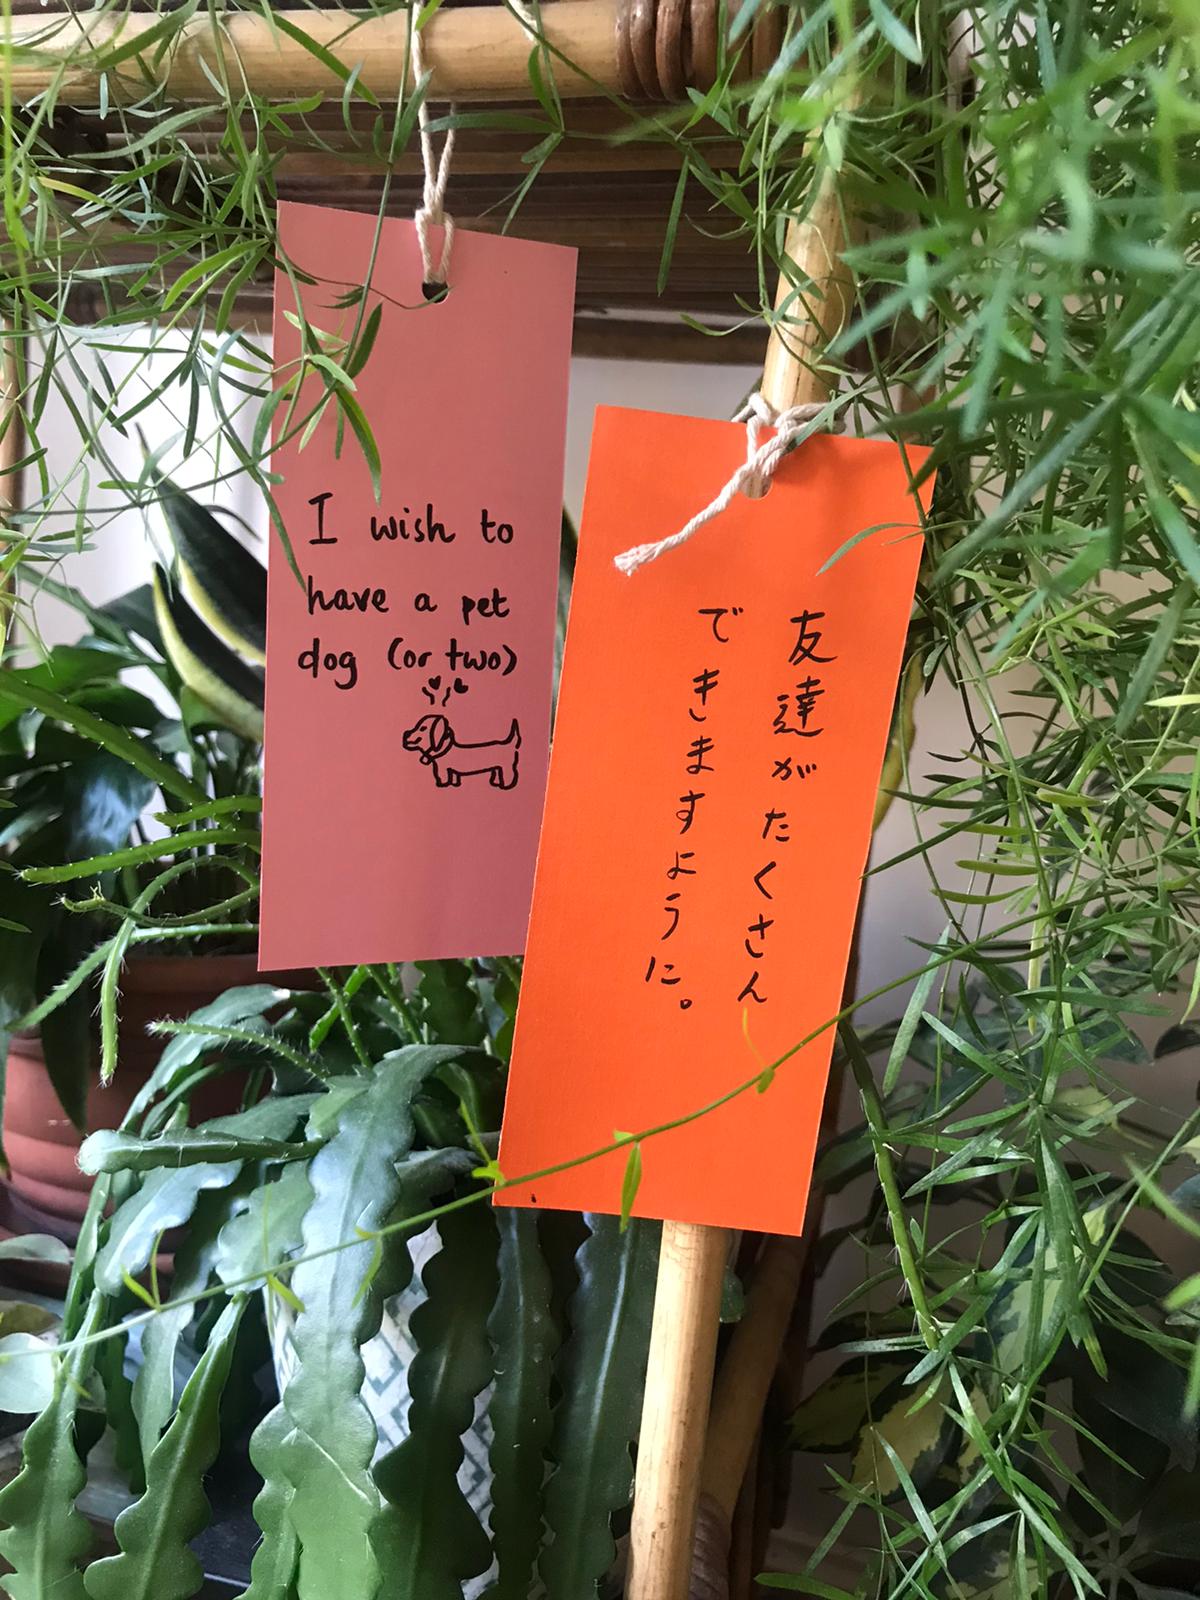 I wish to
have a pet
dog (or two)
友達がたくさん
できますように。